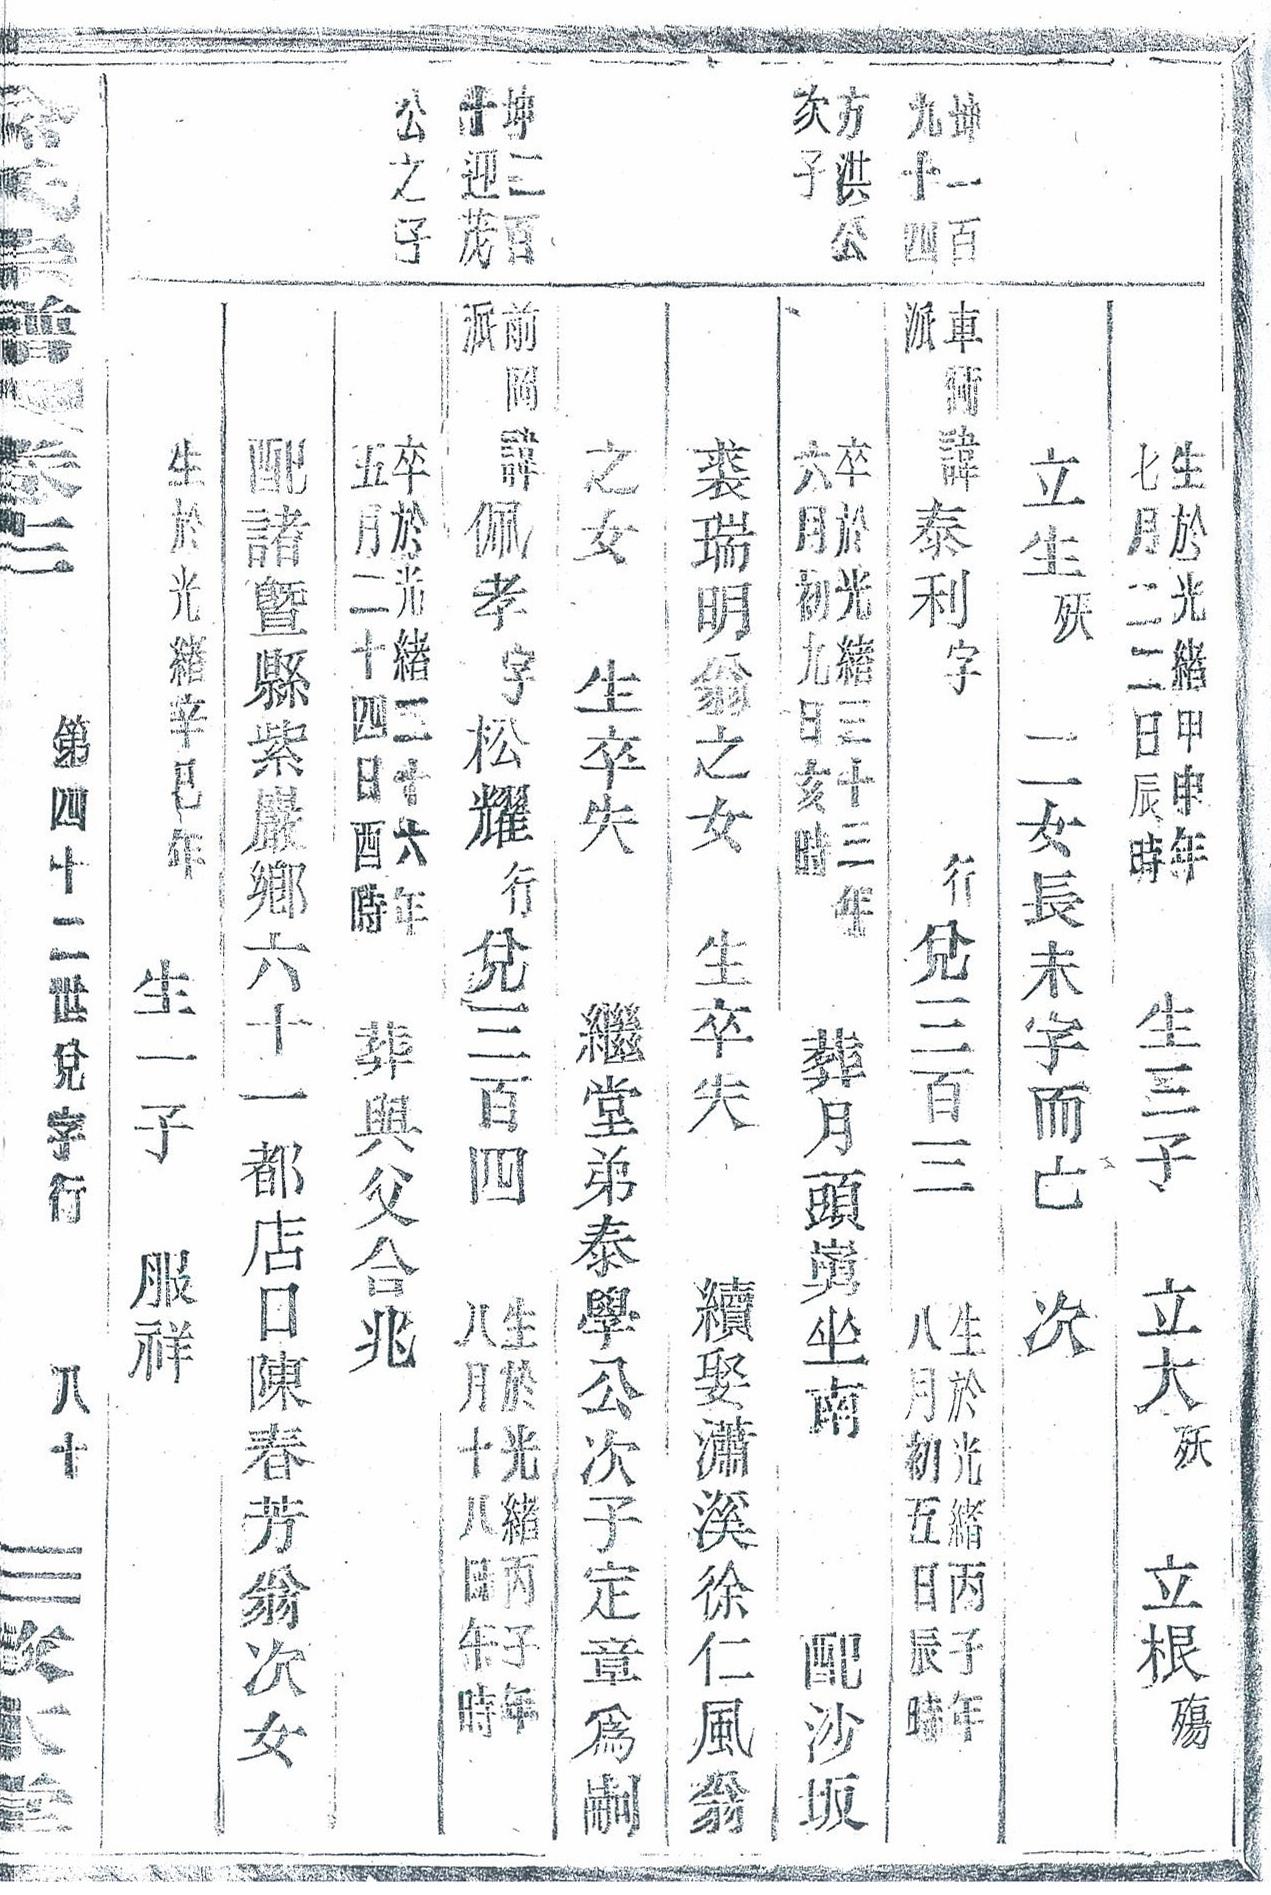 生於光緒甲申年
七月二二日辰時
生三子 立大 殀 立根 殤
立生 殀 二女長未字而亡 次
坤一百
九十四
方洪公
次子
車衕諱
派
泰利 字 行 兌三百三
生於光緒丙子年
八月初五日辰時
卒於光緒三十三年
六月初九日亥時
葬月頭嵔坐南 配沙坂
裘瑞明翁之女 生卒失 續娶瀟溪徐仁風翁
之女 生卒失 繼堂弟泰學公次子定章為嗣
坤三百
十迎茂
公之子
前岡諱
派
佩孝 字 松耀 行 兌三百四
生於光緒丙子年
八月十八日午時
卒於光緒三十六年
五月二十四日酉時
葬與父合兆
配諸暨縣紫巖鄉六十一都店口陳春芳翁次女
生於光緒辛巳年
生一子 服祥
宗譜 卷三
第四十二世兌字行 八十